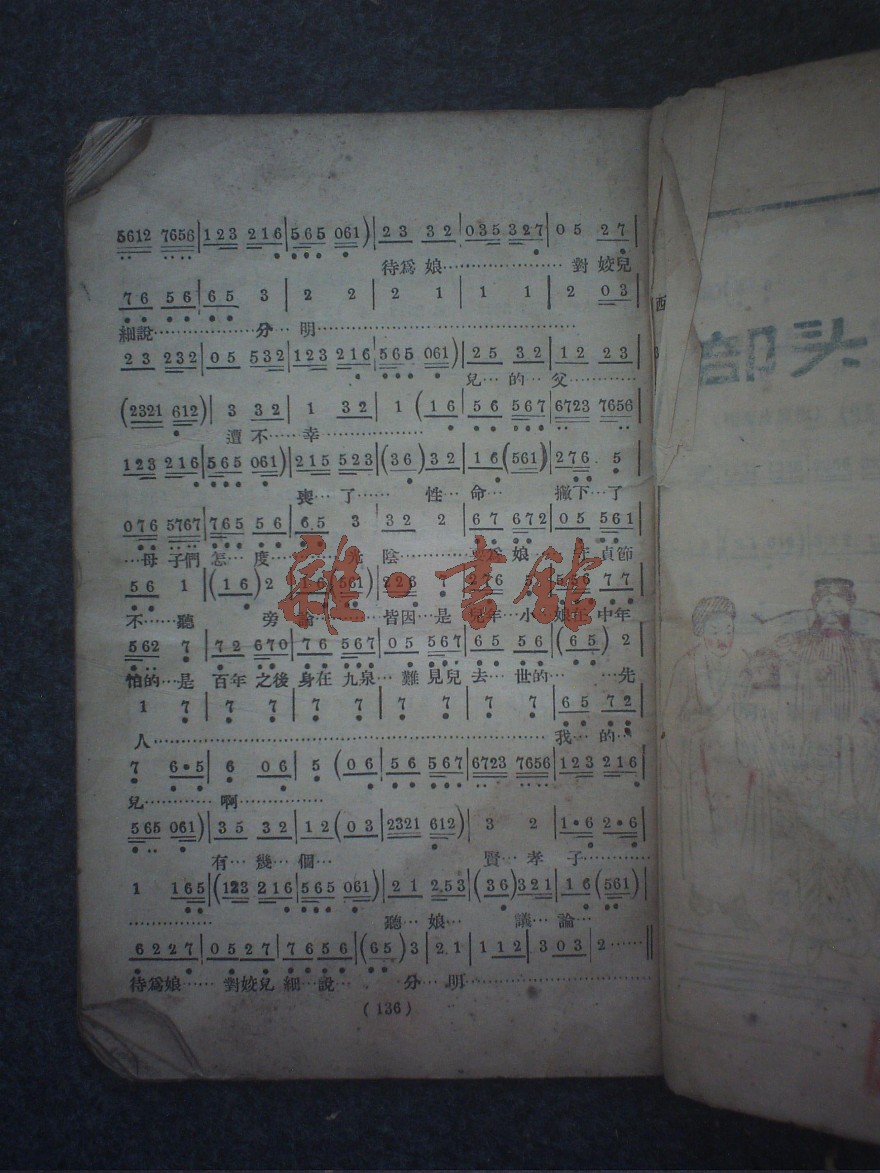 5612 7656|123 216|565 061)|23 32|035 327|05 27|
待爲娘………………對姣兒
76 56|65 3|2 2|2 1|1 1|2 03|
細說………………分…明………………………………
23 232|05 532|123 216|565 061)|25 32|12 23|
兒…的…父…………
(2321 612)|3 32|1 32|1 (16|56 567|6723 7656|
遭不……幸………………
123 216|565 061)|215 523|(36)32|16(561)|276 5|
喪…了……性…命……撇下…了
076 5767|765 56|65 3|32 2|67 672|05 561|
…母子們怎…度…………光陰……爲娘……年貞節
56 1|(16)2|16(561)|226 7|276 5|556 77|
不…聽 旁 皆因…是兒年…小 娘在中年
562 7|72 670|76 567|05 567|65 56|(65)2|
怕的…是 百年之後 身在九泉…難見兒 去…世的……先
1 7|7 7|7 7|7 7|7 7|65 72|
人………………………………………………我…的…
7 6·5|6 06|5 (06|56 567|6723 7656|123 216|
兒…………啊………………
565 061)|35 32|12(03|2321 612)|3 2|1·6 2·6|
有…幾…個… 賢…孝子…………
1 165|(123 216|565 061)|21 2.53|(36)321|16(561)|
………… 聽…娘… 議…論…
6227|0527|7656|(65)3|2.1|112|303|2……‖
待爲娘…… 對姣兒 細…說… 分…明………………………………
(136)
雜·書館
西
部头